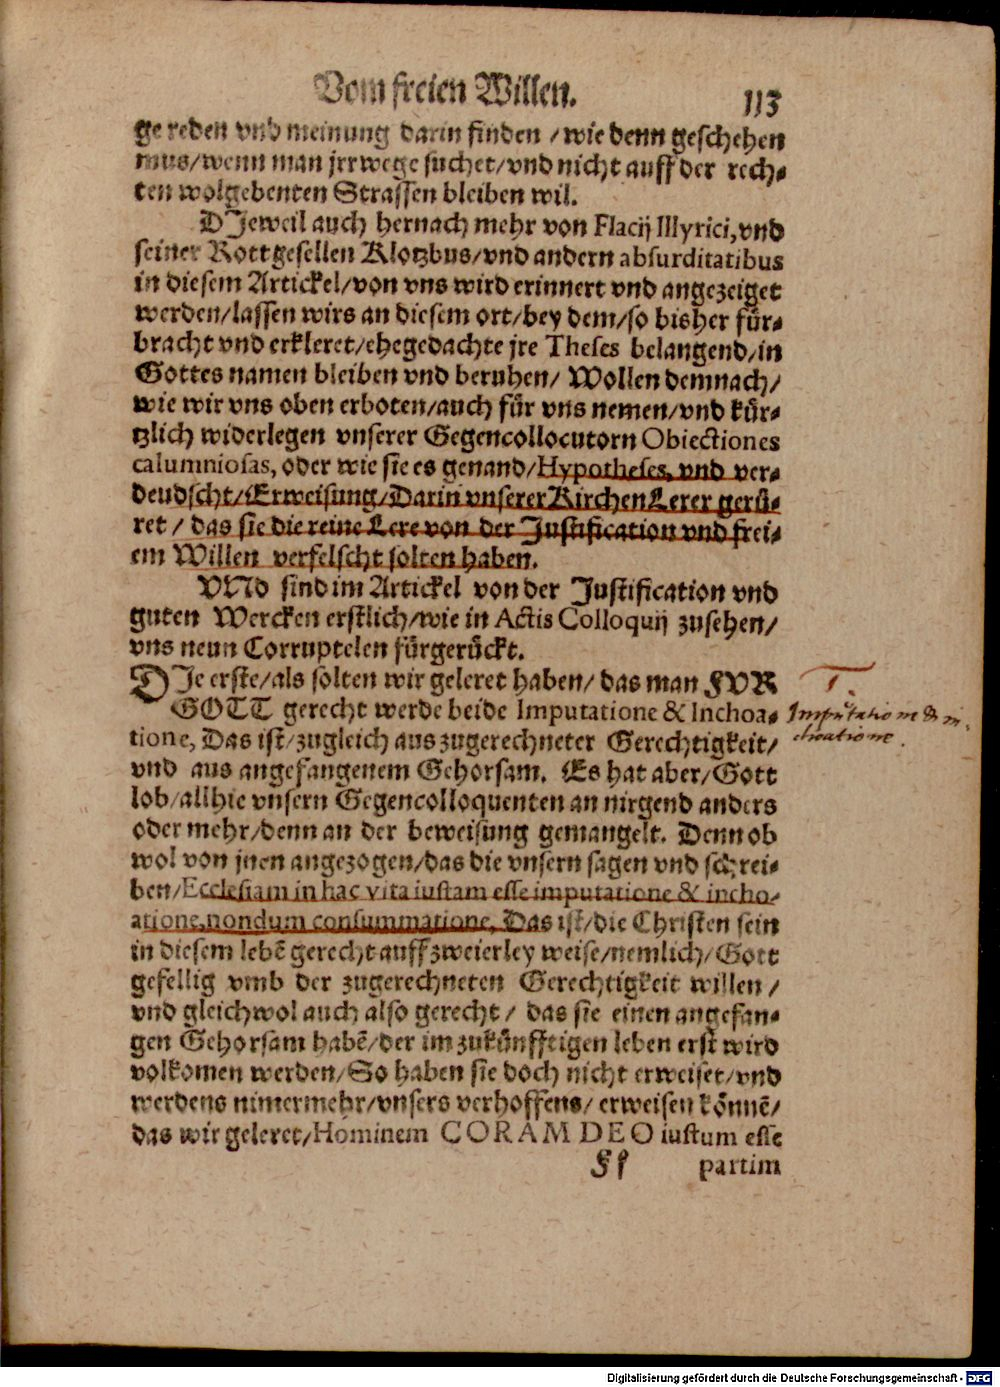 Vom freien Willen. 113
ge reden vnd meinung darin finden / wie denn geschehen
mus/wenn man jrrwege suchet/vnd nicht auff der rech⸗
ten wolgebenten Strassen bleiben wil.
DJeweil auch hernach mehr von Flacij Illyrici, vnd
seiner Rottgesellen Klotzbus/vnd andern absurditatibus
in diesem Artickel/von vns wird erinnert vnd angezeiget
werden/lassen wirs an diesem ort/bey dem/so bisher für⸗
bracht vnd erkleret/ehegedachte jre Theses belangend/in
Gottes namen bleiben vnd beruhen/ Wollen demnach/
wie wir vns oben erboten/auch für vns nemen/vnd kür⸗
tzlich widerlegen vnserer Gegencollocutorn Obiectiones
calumniosas, oder wie sie es genand/Hypotheses, vnd ver⸗
deudscht/Erweisung/Darin vnserer Kirchen Lerer gerü⸗
ret / das sie die reine Lere von der Justification vnd frei⸗
em Willen verfelscht solten haben.
VNd sind im Artickel von der Justification vnd
guten Wercken erstlich/wie in Actis Colloquij zusehen/
vns neun Corruptelen fürgerückt.
DJe erste/als solten wir geleret haben/ das man FVR
GOTT gerecht werde beide Imputatione & Inchoa⸗
tione, Das ist/zugleich aus zugerechneter Gerechtigkeit/
vnd aus angefangenem Gehorsam. Es hat aber/Gott
lob/allhie vnsern Gegencolloquenten an nirgend anders
oder mehr/denn an der beweisung gemangelt. Denn ob
wol von jnen angezogen/das die vnsern sagen vnd schrei⸗
ben/Ecclesiam in hac vita iustam esse imputatione & incho⸗
atione, nondum consummatione, Das ist/die Christen sein
in diesem lebē gerecht auff zweierley weise/nemlich/Gott
gefellig vmb der zugerechneten Gerechtigkeit willen /
vnd gleichwol auch also gerecht / das sie einen angefan⸗
gen Gehorsam habē/der im zukünfftigen leben erst wird
volkomen werden/So haben sie doch nicht erweiset/vnd
werdens nimermehr/vnsers verhoffens/ erweisen könnē/
das wir geleret/Hominem CORAM DEO iustum esse
Ff partim
1.
Imputatione & in⸗
choatione.
Digitalisierung gefördert durch die Deutsche Forschungsgemeinschaft - DFG